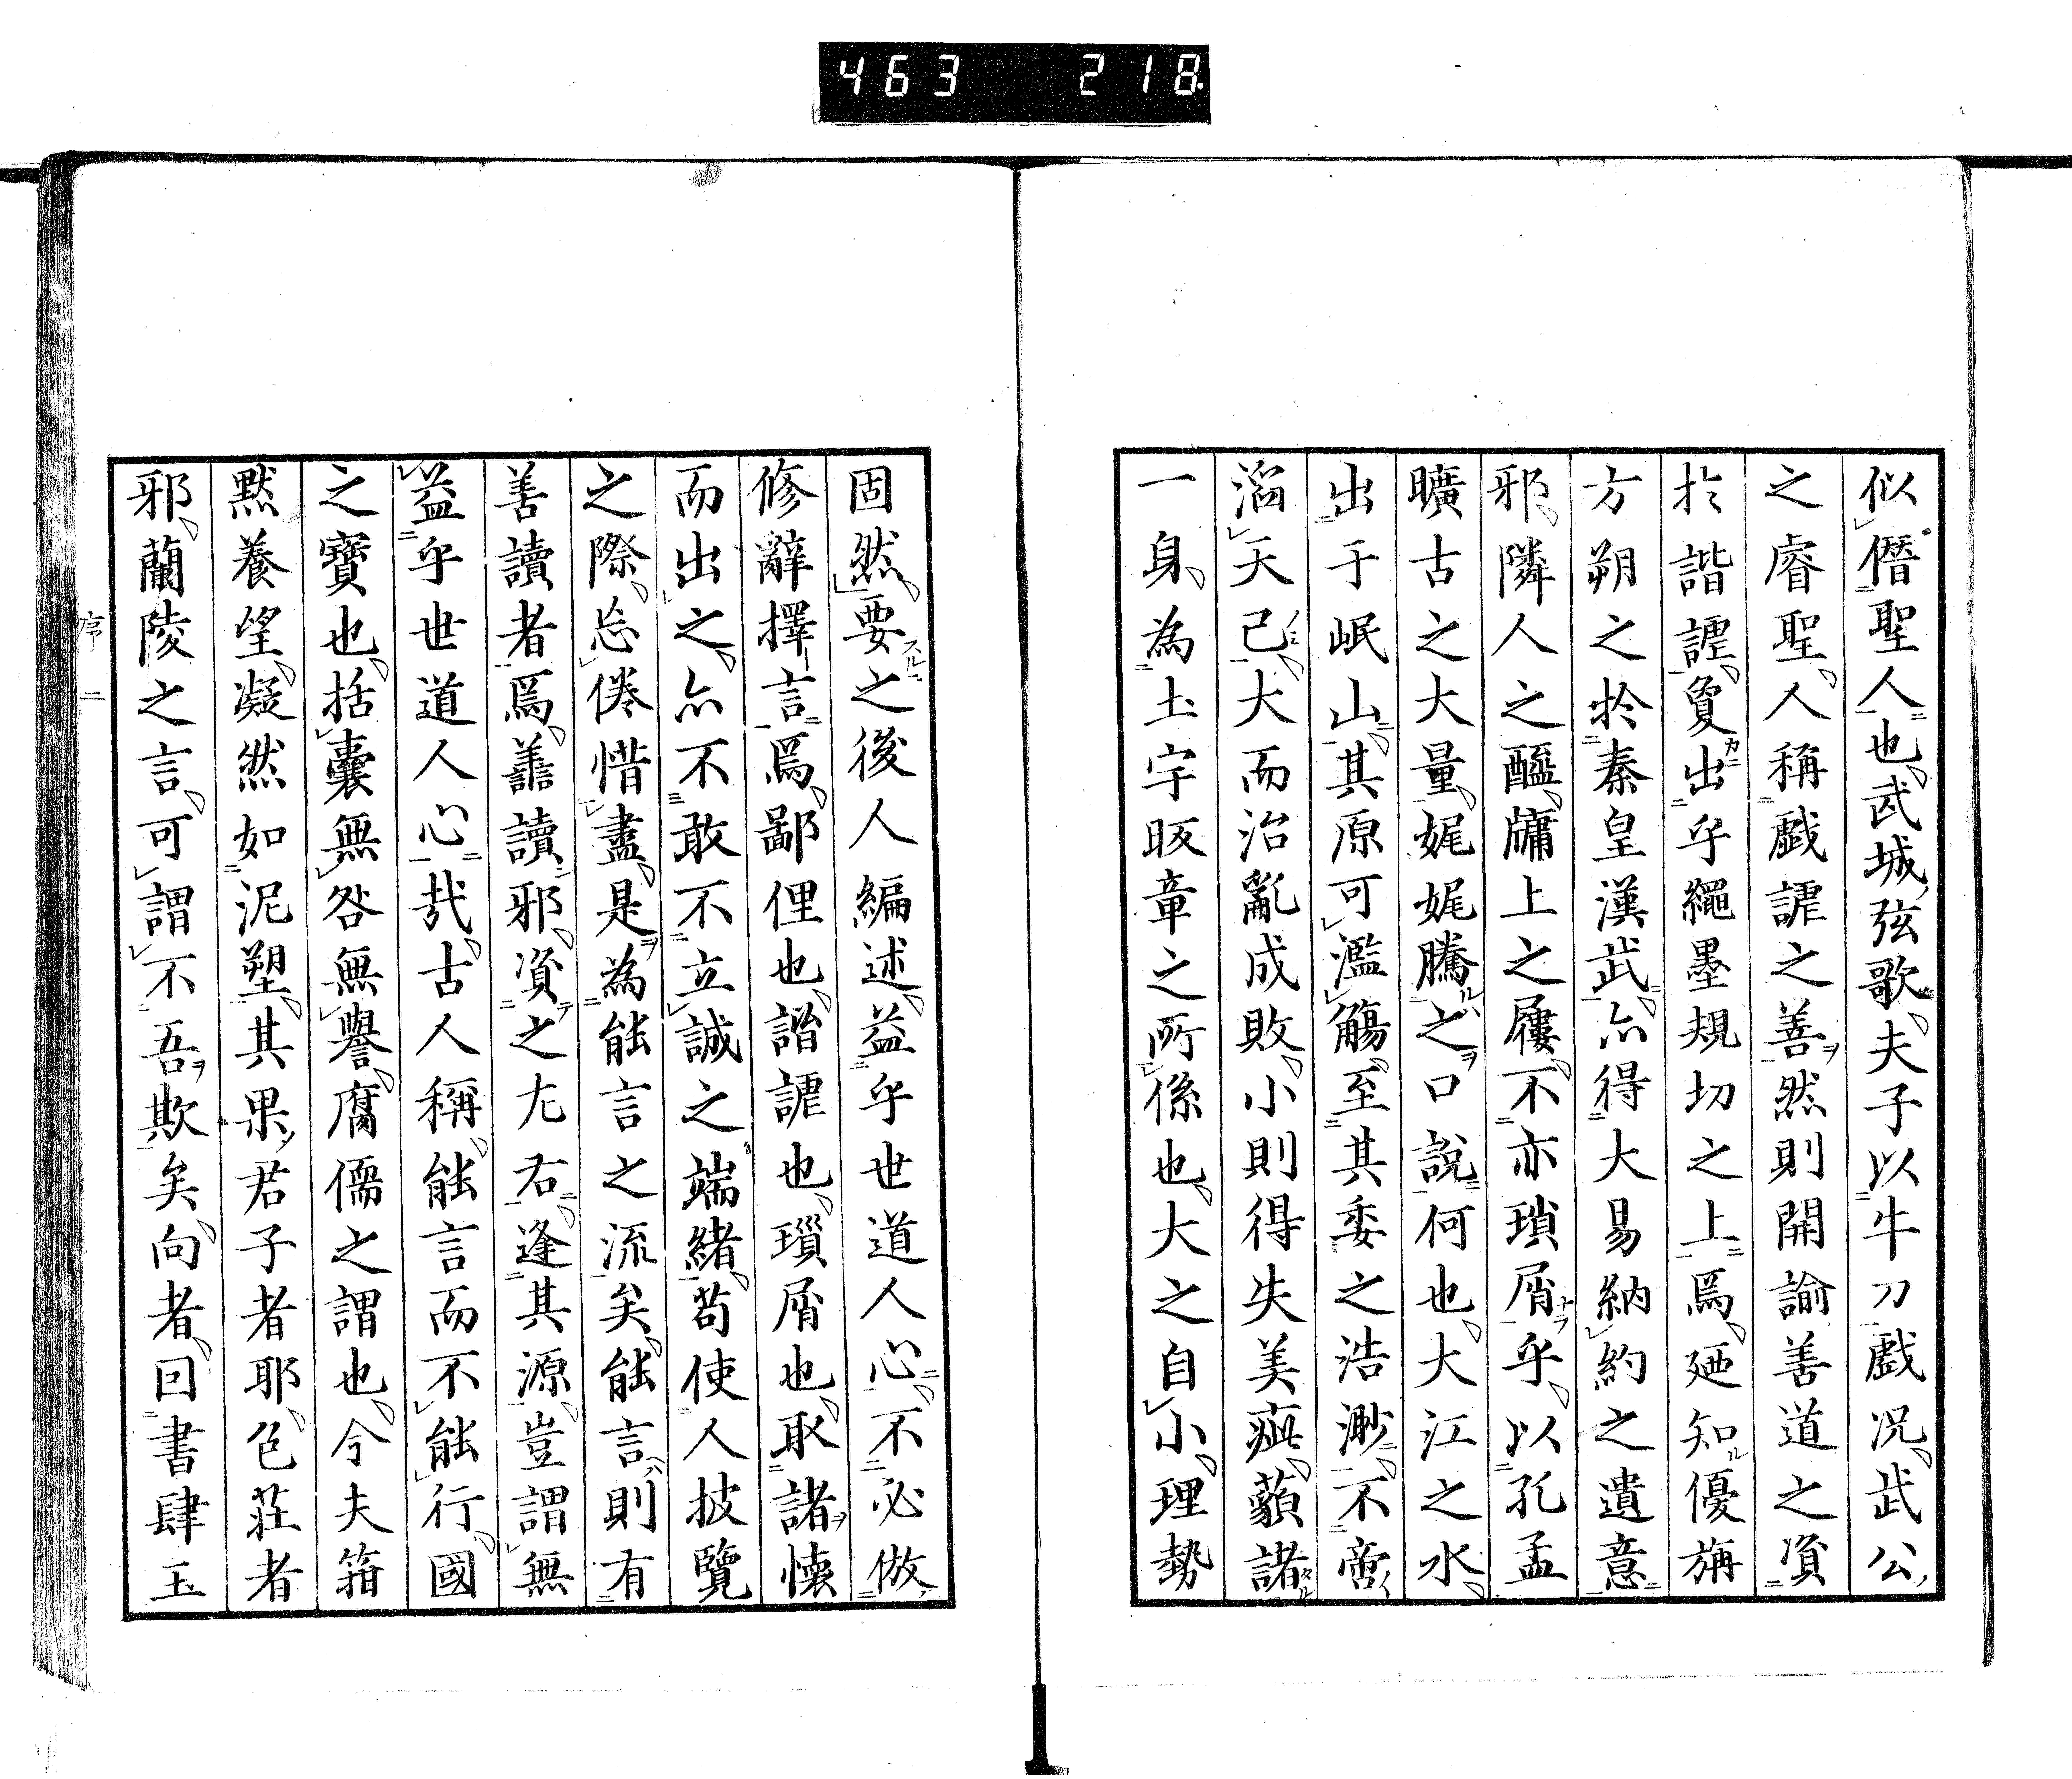 463 218
似僭聖人也武城弦歌夫子以牛刀戲况武公
之睿聖人稱戯謔之善然則開諭善道之資
扵諧謔敻出乎繩墨規切之上焉廼知優旃
方朔之扵秦皇漢武亦得大易納約之遺意
邪隣人之醯牗上之屨不亦瑣屑乎以孔孟
曠古之大量娓娓騰之口說何也大江之水
出于岷山其原可濫觴至其委之浩渺不啻
滔天已大而治亂成敗小則得失美疵藐諸
一身為土宇昄章之所係也大之自小理勢
固然要之後人編述益乎世道人心不必倣
修辭擇言焉鄙俚也諧謔也瑣屑也取諸懐
而出之亦不敢不立誠之端緒苟使人披覽
之際忘倦惜盡是為能言之流矣能言則有
善讀者焉譱讀邪資之左右逢其源豈謂無
益乎世道人心哉古人稱能言而不能行國
之寶也括囊無咎無譽腐儒之謂也今夫箝
黙養望凝然如泥塑其果君子者耶色荘者
邪蘭陵之言可謂不吾欺矣向者回書肆玉
序 二